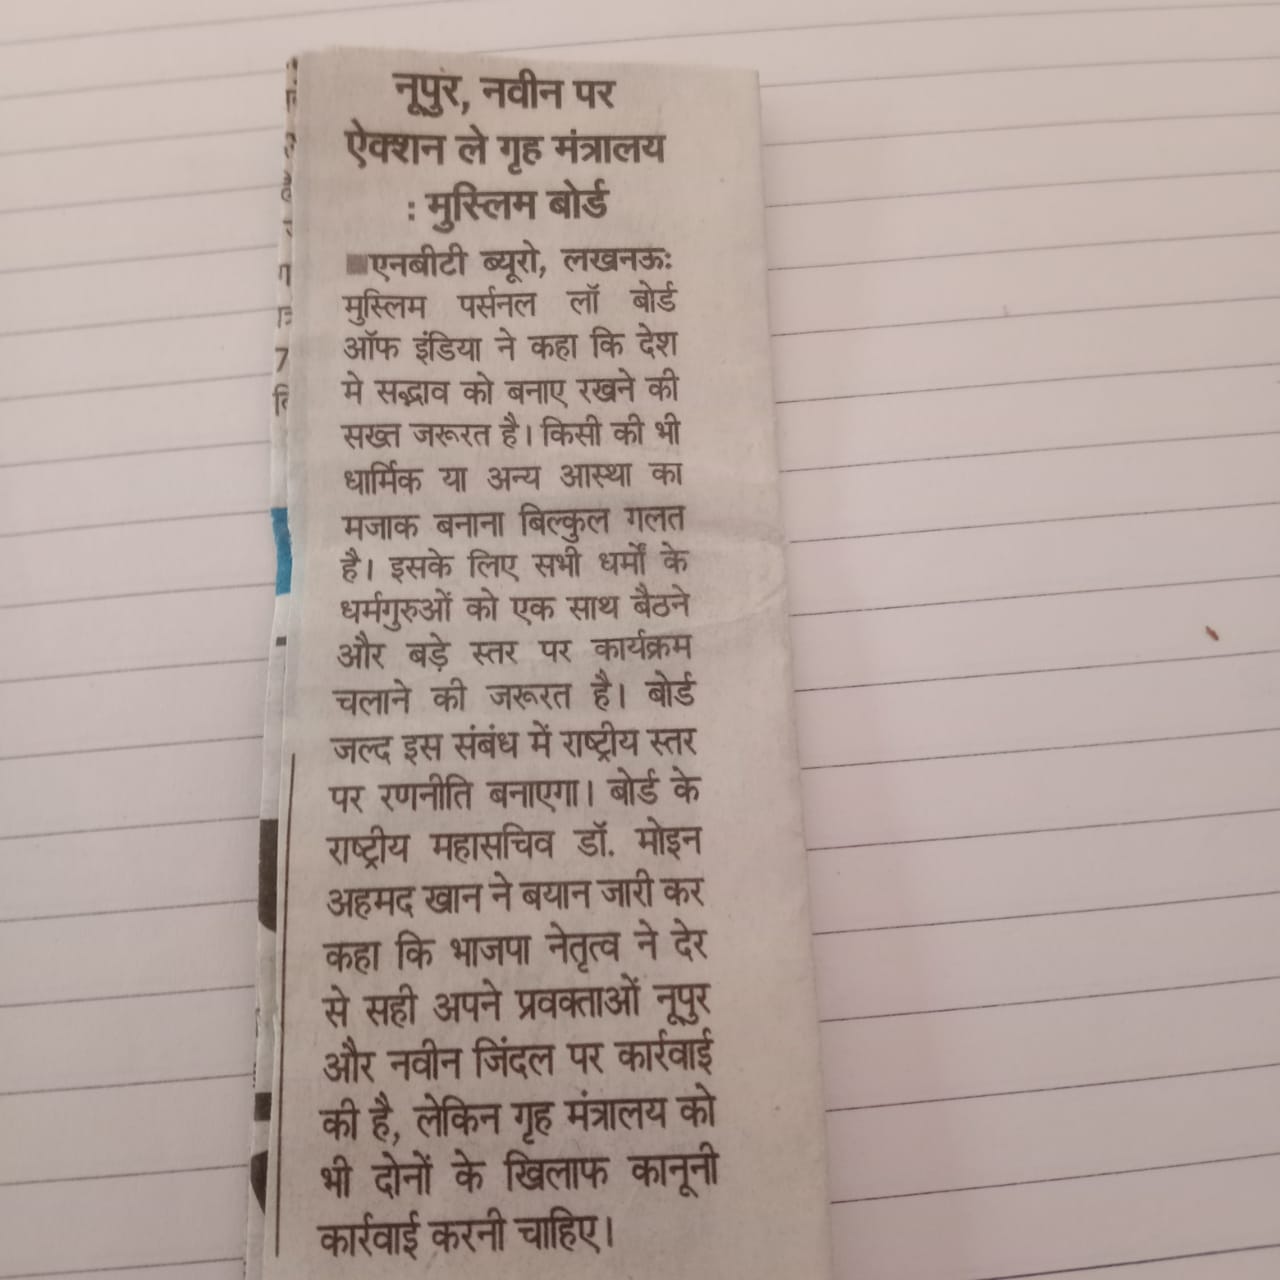 नूपुर, नवीन पर
ऐक्शन ले गृह मंत्रालय
: मुस्लिम बोर्ड
■एनबीटी ब्यूरो, लखनऊः
मुस्लिम पर्सनल लॉ बोर्ड
ऑफ इंडिया ने कहा कि देश
मे सद्भाव को बनाए रखने की
सख्त जरूरत है। किसी की भी
धार्मिक या अन्य आस्था का
मजाक बनाना बिल्कुल गलत
है। इसके लिए सभी धर्मों के
धर्मगुरुओं को एक साथ बैठने
और बड़े स्तर पर कार्यक्रम
चलाने की जरूरत है। बोर्ड
जल्द इस संबंध में राष्ट्रीय स्तर
पर रणनीति बनाएगा। बोर्ड के
राष्ट्रीय महासचिव डॉ. मोइन
अहमद खान ने बयान जारी कर
कहा कि भाजपा नेतृत्व ने देर
से सही अपने प्रवक्ताओं नूपुर
और नवीन जिंदल पर कार्रवाई
की है, लेकिन गृह मंत्रालय को
भी दोनों के खिलाफ कानूनी
कार्रवाई करनी चाहिए।